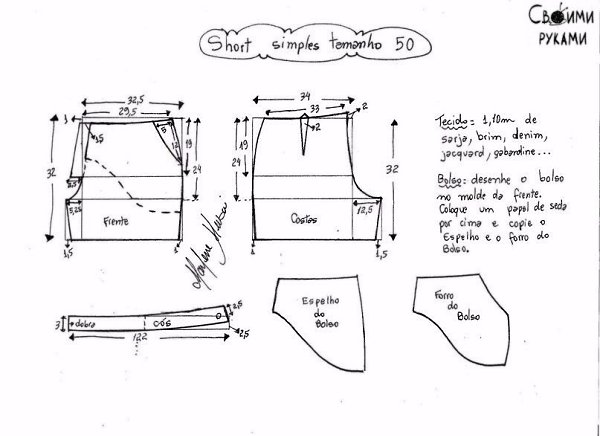 Своими
руками
Short simples tamanho 50
32,5
29,5
1
1,5
5
12
19
24
32
2,5
5,25
Frente
1,5
1
34
33
2
2
19
24
32
12,5
Costas
1
1,5
Tecido: 1,10m de
sarja, brim, denim,
jacquard, gabardine...
Bolso: desenhe o bolso
no molde da frente.
Coloque um papel de seda
por cima e copie o
Espelho e o forro do
Bolso.
3
dobra
cós
2,5
2,5
122
Espelho
do
Bolso
Forro
do
Bolso